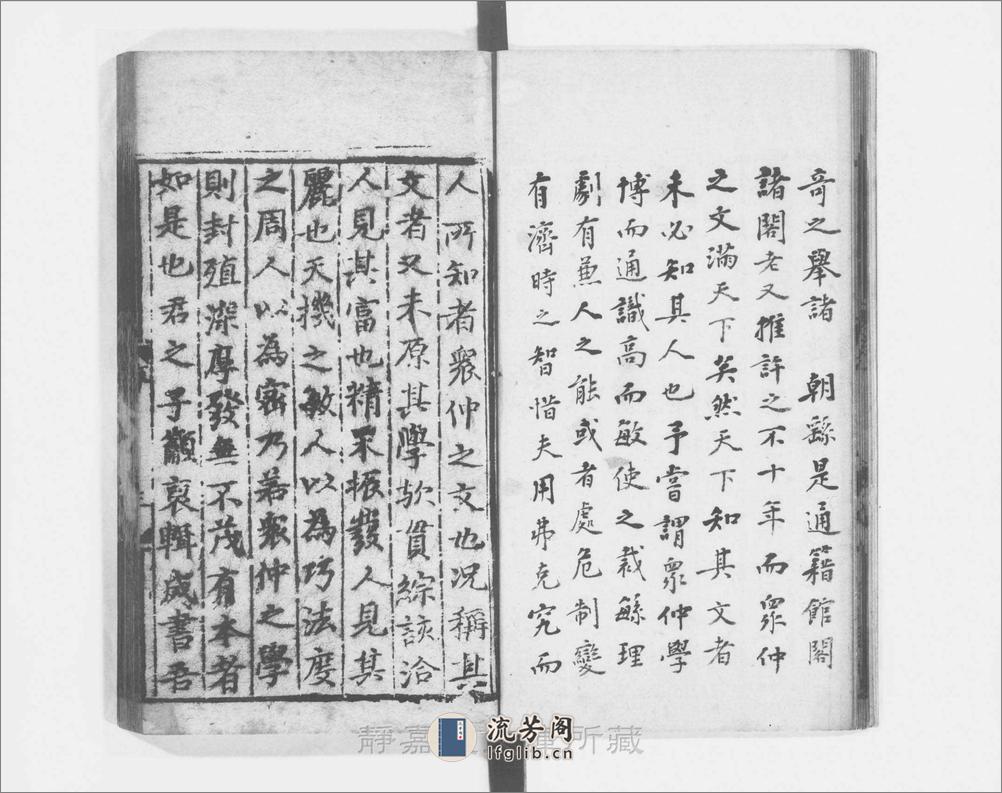 奇之舉諸　朝繇是通籍館閣
諸閣老又推許之不十年而眾仲
之文滿天下矣然天下知其文者
未必知其人也予嘗謂眾仲學
博而通識高而敏使之裁繇理
劇有兼人之能或者處危制變
有濟時之智惜夫用弗克究而
人所知者衆仲之文也况稱其
文者又未原其學欤貫綜該洽
人見其富也精采振發人見其
麗也天機之敏人以為巧法度
之周人以為密乃若衆仲之學
則封殖深厚發無不茂有本者
如是也君之子籲裒輯成書吾
靜嘉 所藏
流芳阁
lfglib.cn